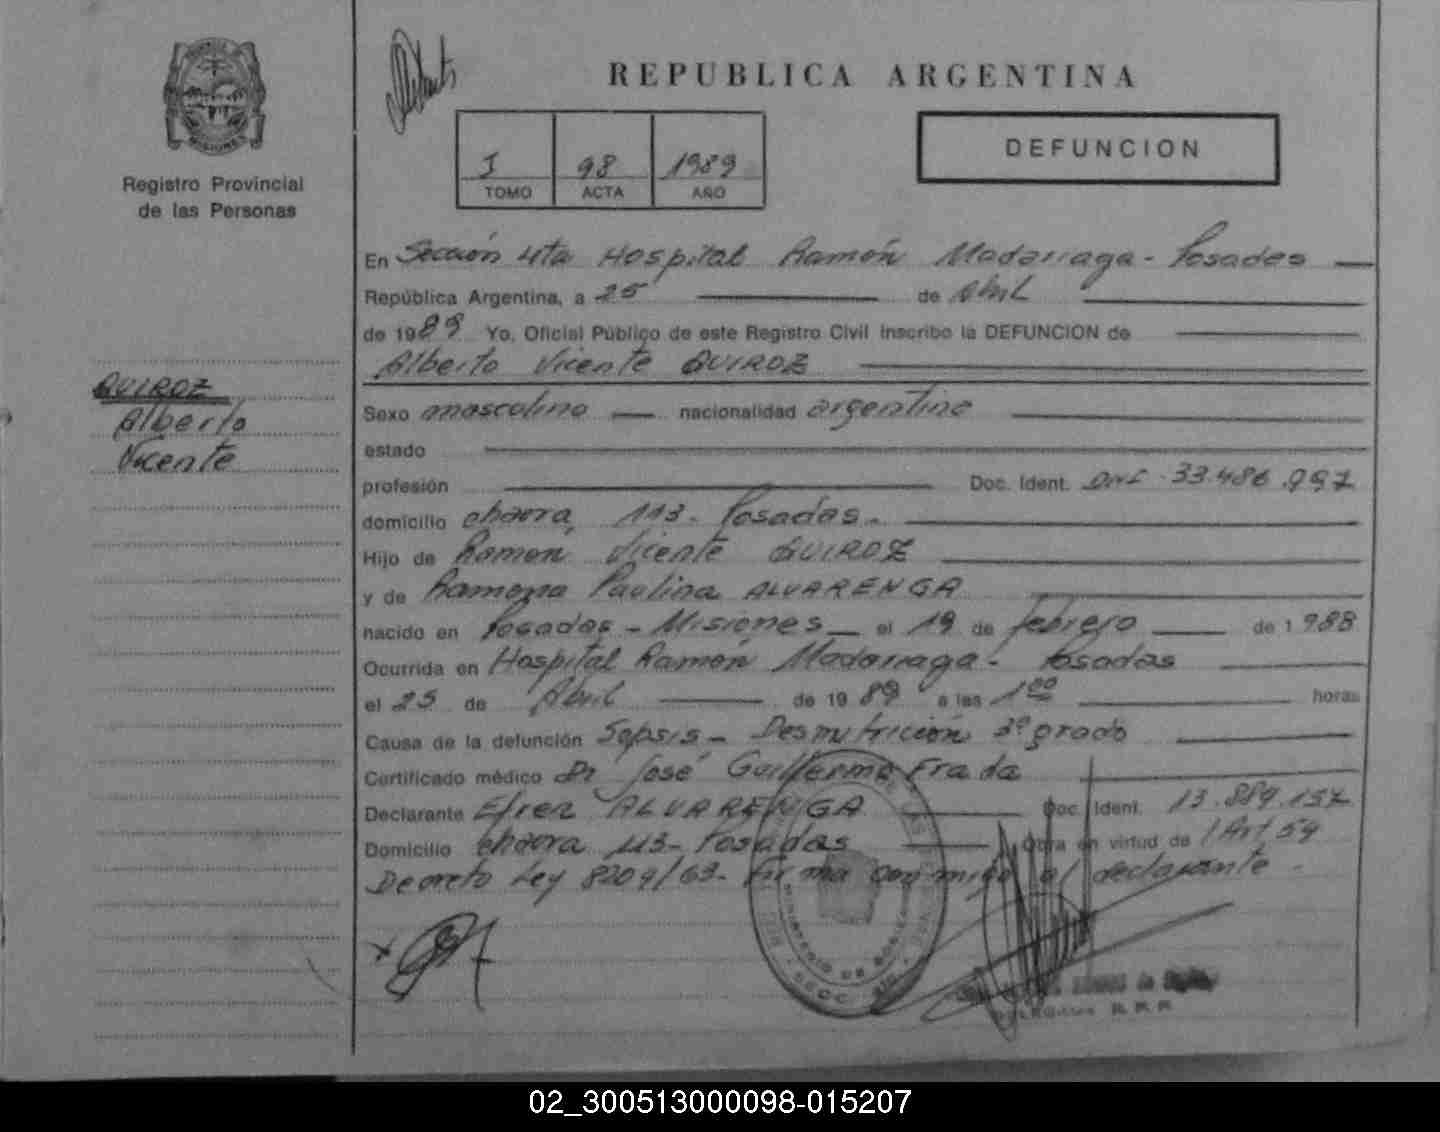 REPUBLICA ARGENTINA
MISIONES
Registro Provincial
de las Personas
I 98 1989
TOMO ACTA AÑO
DEFUNCION
QUIROZ
Alberto
Vicente
En Sección 4ta Hospital Ramón Madariaga - Posadas
República Argentina, a 25 de Abril
de 1989 Yo, Oficial Público de este Registro Civil inscribo la DEFUNCION de
Alberto Vicente QUIROZ
Sexo masculino nacionalidad argentina
estado
profesión Doc. Ident. DNI - 33.486.997
domicilio chacra 113 - Posadas -
Hijo de Ramón Vicente QUIROZ
y de Ramona Paulina ALVARENGA
nacido en Posadas - Misiones el 19 de febrero de 1988
Ocurrida en Hospital Ramón Madariaga - Posadas
el 25 de Abril de 1989 a las 1 00 horas
Causa de la defunción Sepsis - Desnutrición 3º grado
Certificado médico Dr José Guillermo Frada
Declarante Efren ALVARENGA Doc. Ident. 13.889.157
Domicilio chacra 113 - Posadas Obra en virtud de /Art 59
Decreto Ley 8204/63 - Firma conmigo el declarante -
MINISTERIO DE
R. P. P.
02_300513000098-015207